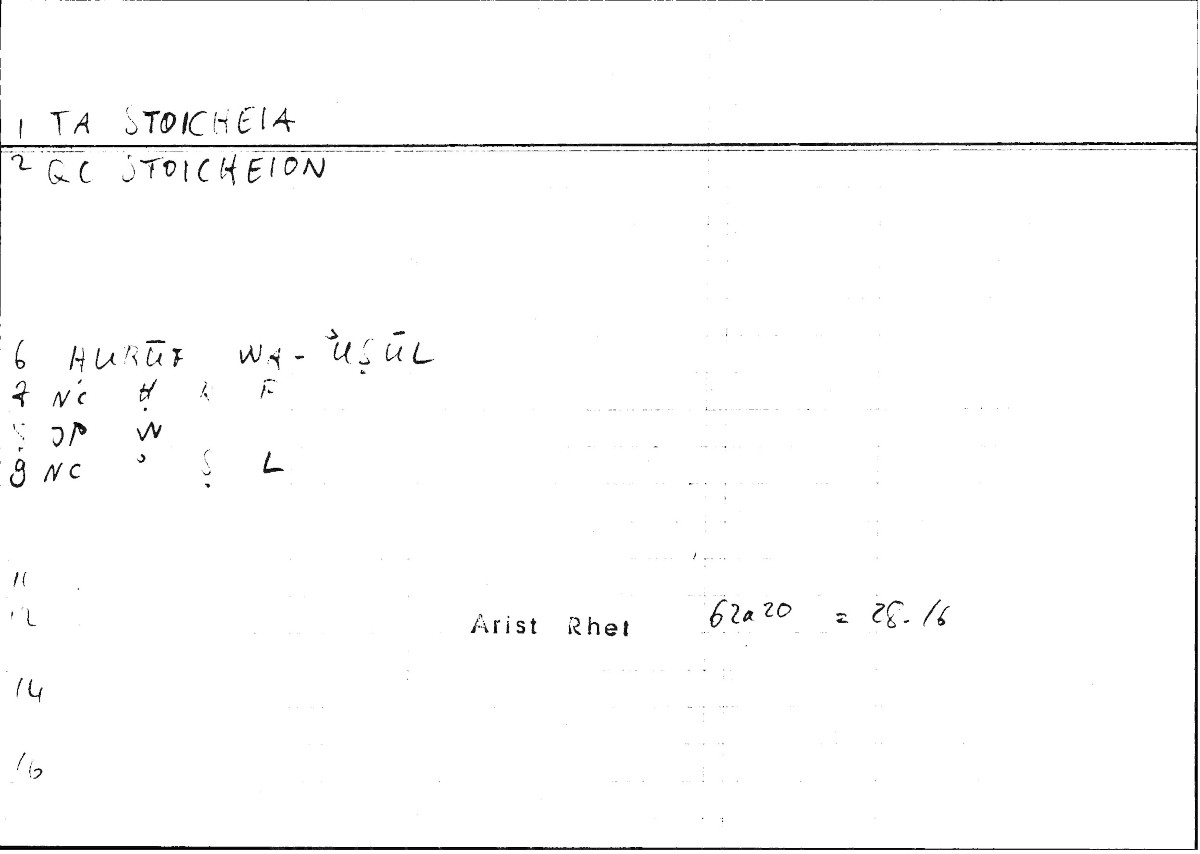 1 TA STOICHEIA
2 GC STOICHEION
6 ḤURŪF WA-ʾUṢŪL
7 NC Ḥ R F
8 JP W
9 NC ʾ Ṣ L
11
12
Arist Rhet 62a20 = 28.16
14
16